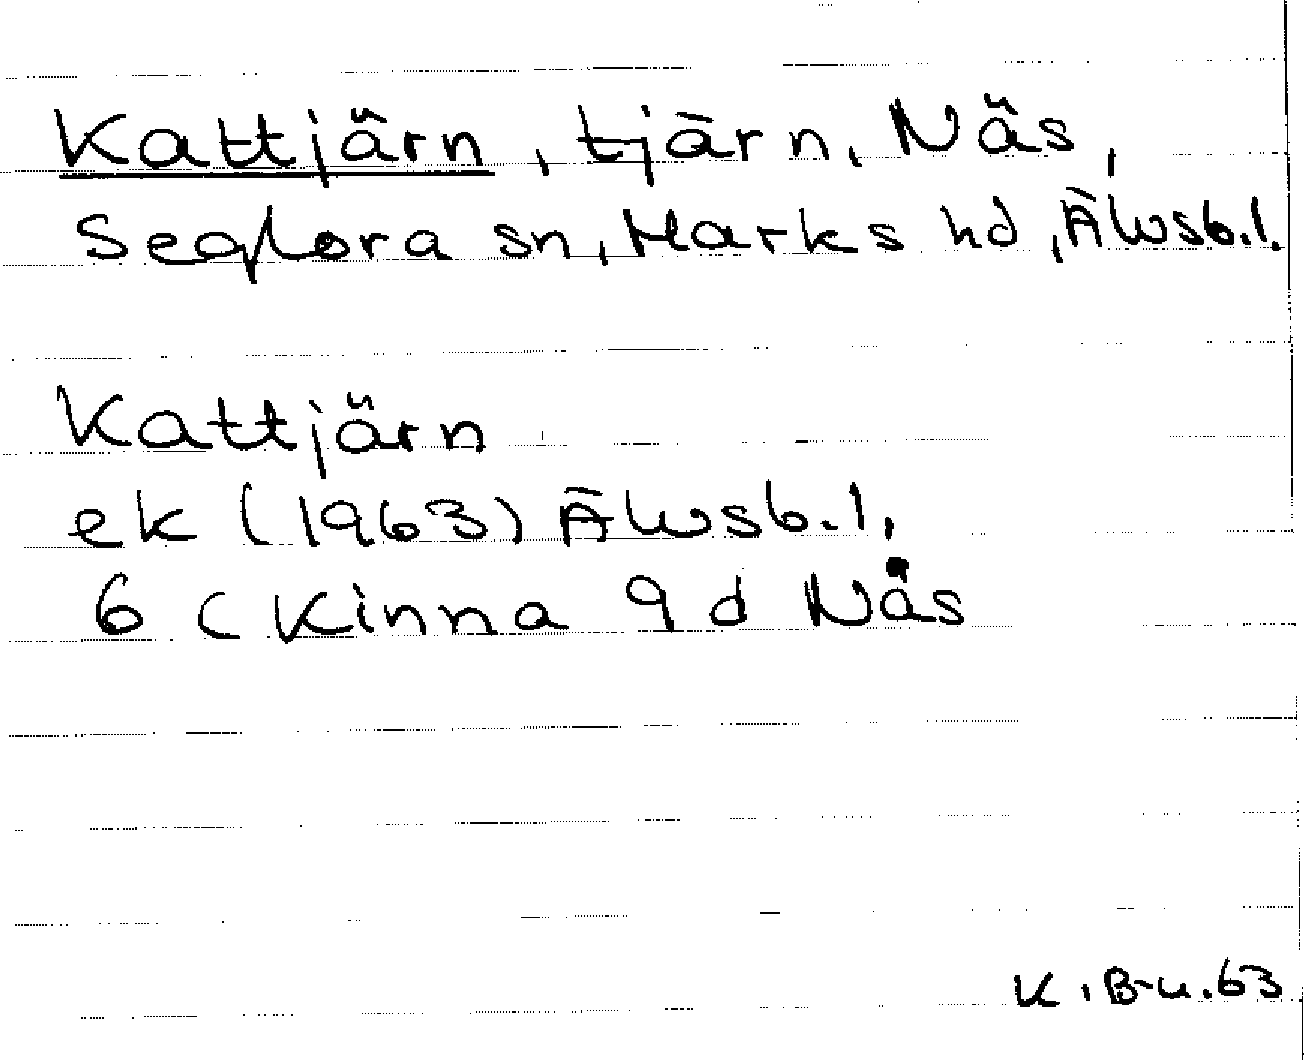 Kattjärn, tjärn, Näs,
Seglora sn, Marks hd, Älvsb.l.
Kattjärn
ek (1963) Älvsb.l,
6 C Kinna 9 d Näs
K.B-n.63